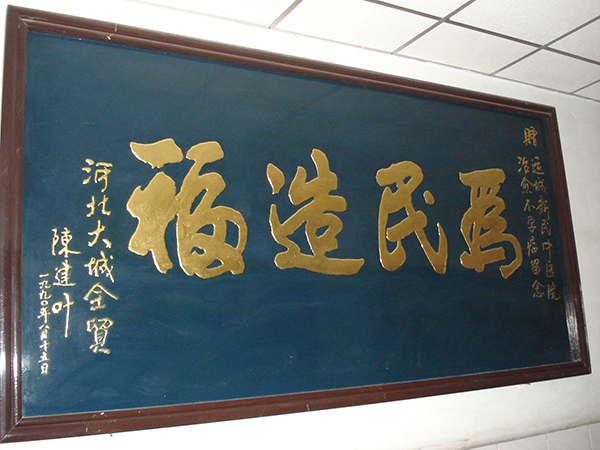 贈
运城新民中医院
治愈不孕症留念
為民造福
河北大城全賀
陳建叶
一九九〇年八月十五日